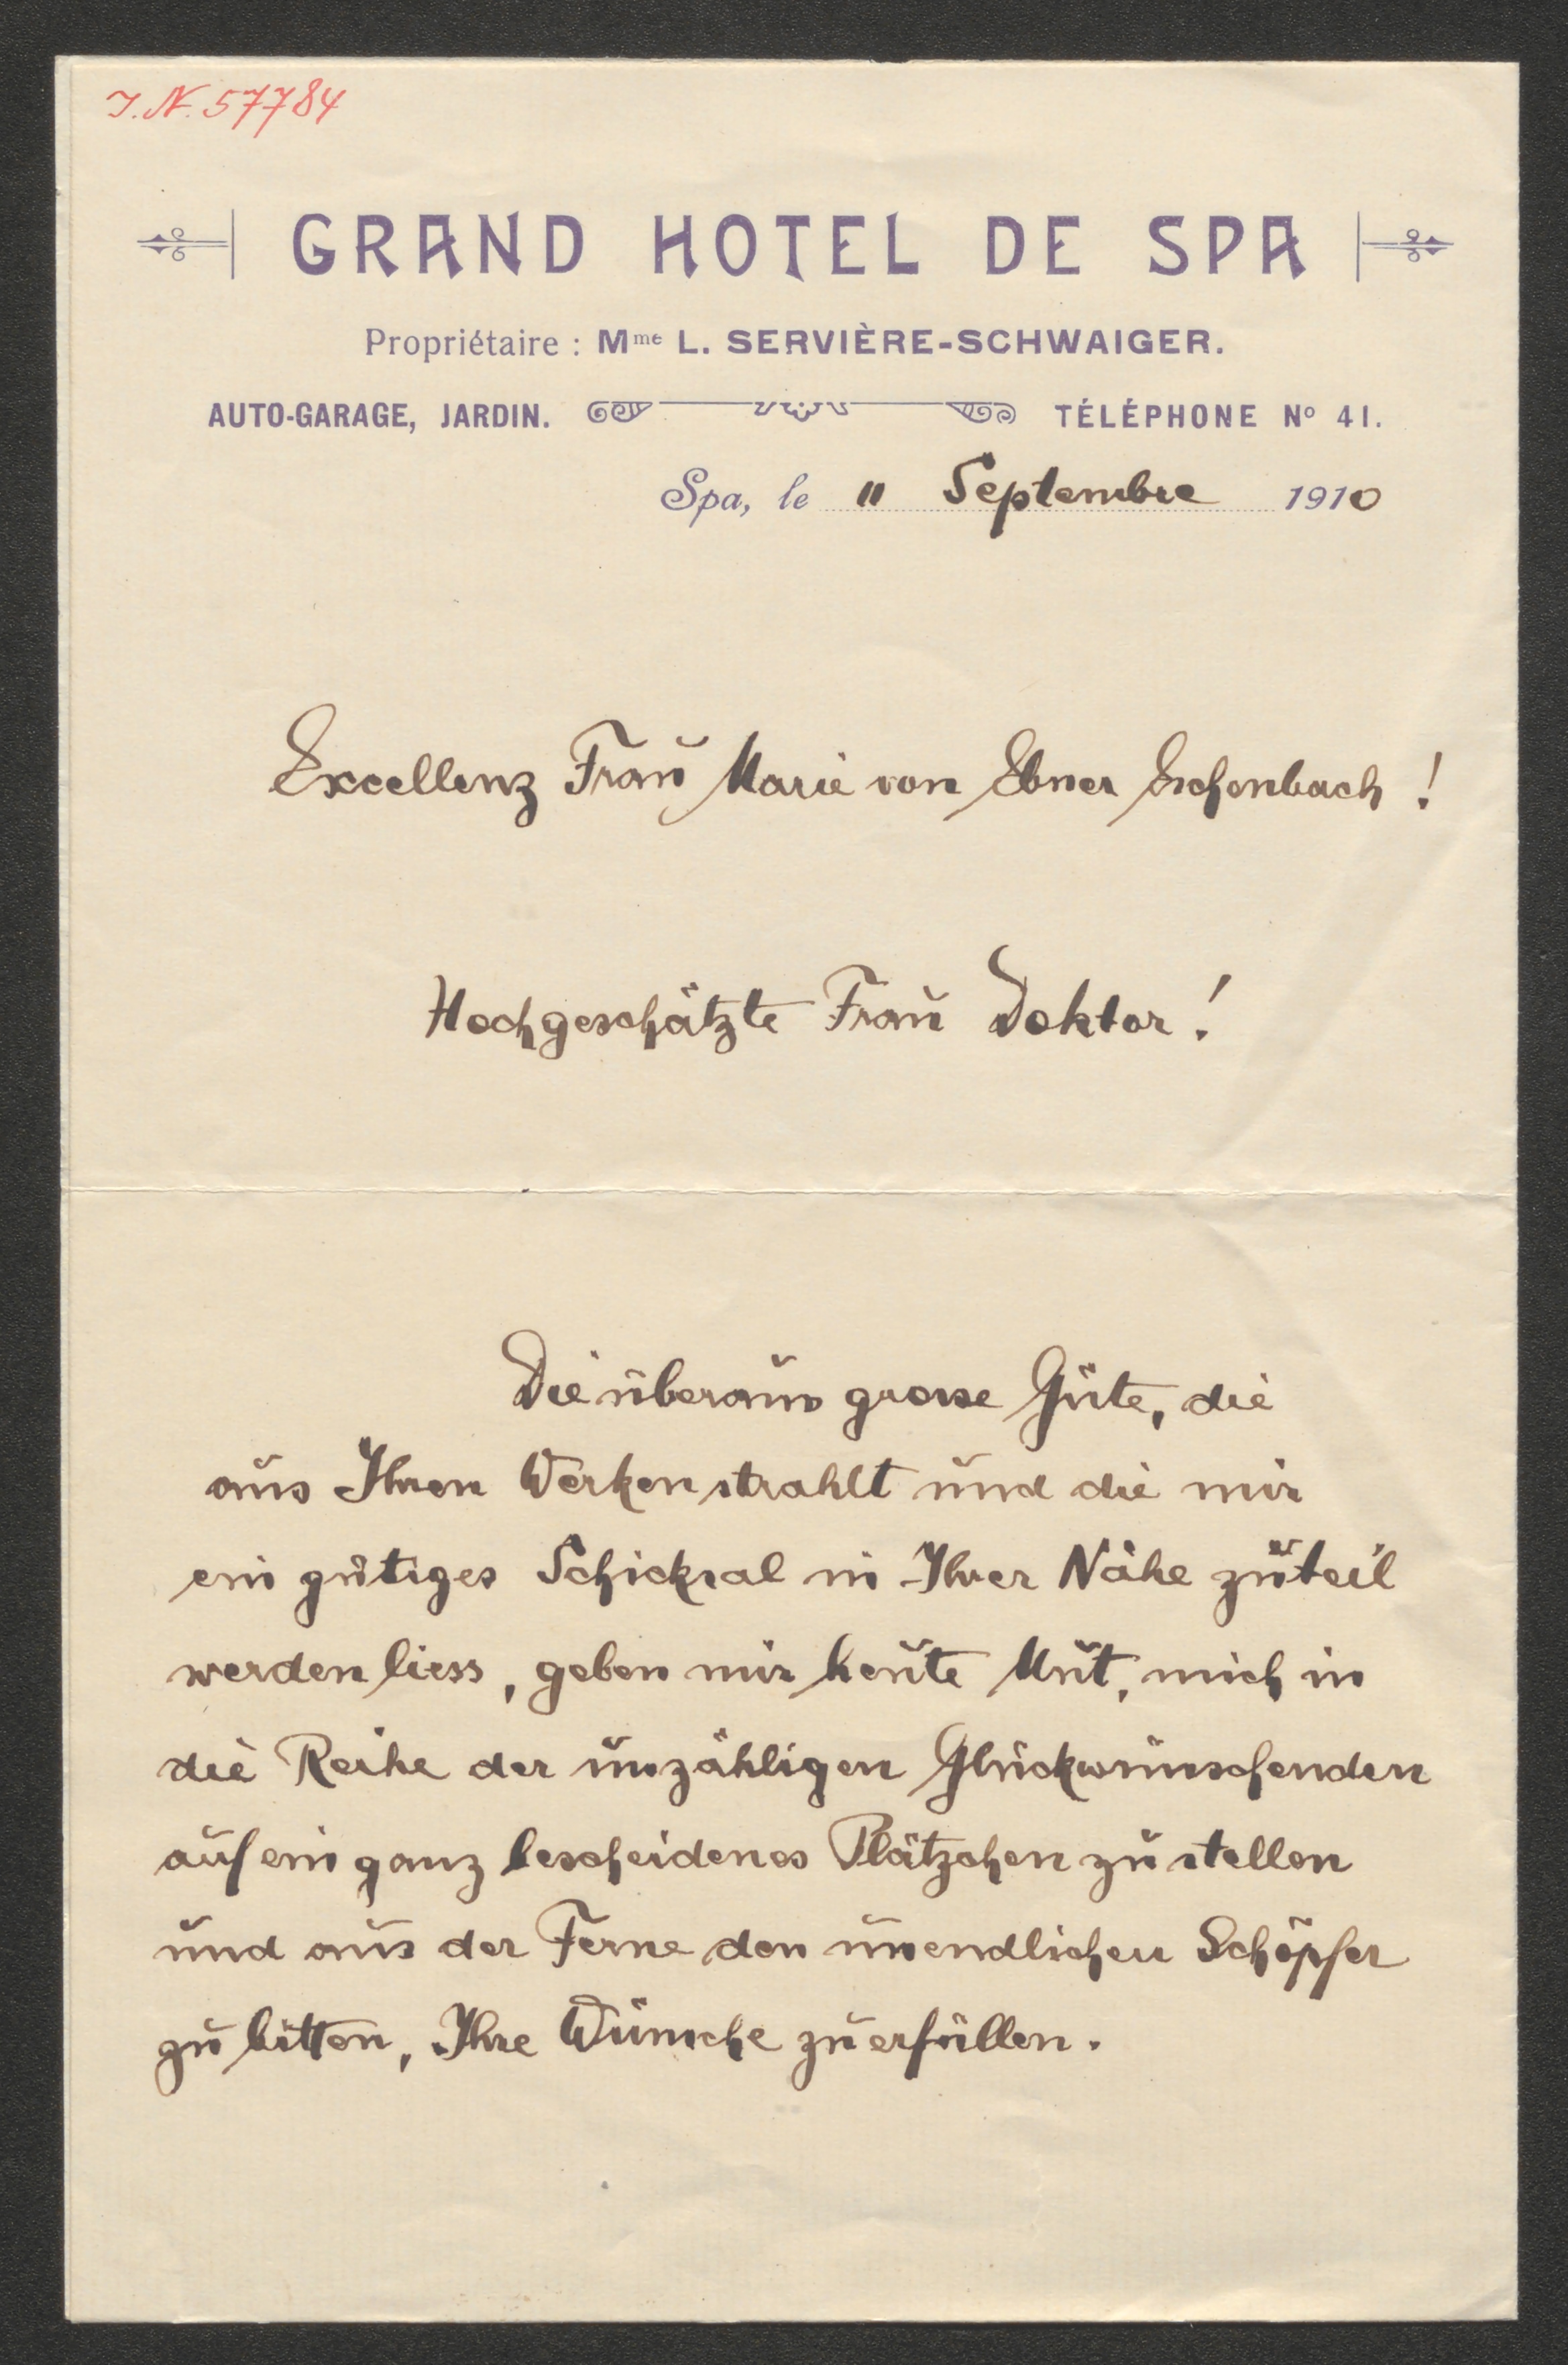 I.N. 57784
GRAND HOTEL DE SPA
Propriétaire : Mme L. SERVIÈRE-SCHWAIGER.
AUTO-GARAGE, JARDIN. TÉLÉPHONE No 41.
Spa, le 11 Septembre 1910
Excellenz Frau Marie von Ebner Eschenbach !
Hochgeschätzte Frau Doktor !
Die überaus grosse Güte, die
aus Ihren Werken strahlt und die mir
ein gütiges Schicksal in Ihrer Nähe zuteil
werden liess, geben mir heute Mut, mich in
die Reihe der unzähligen Glückwünschenden
auf ein ganz bescheidenes Plätzchen zu stellen
und aus der Ferne den unendlichen Schöpfer
zu bitten, Ihre Wünsche zu erfüllen.